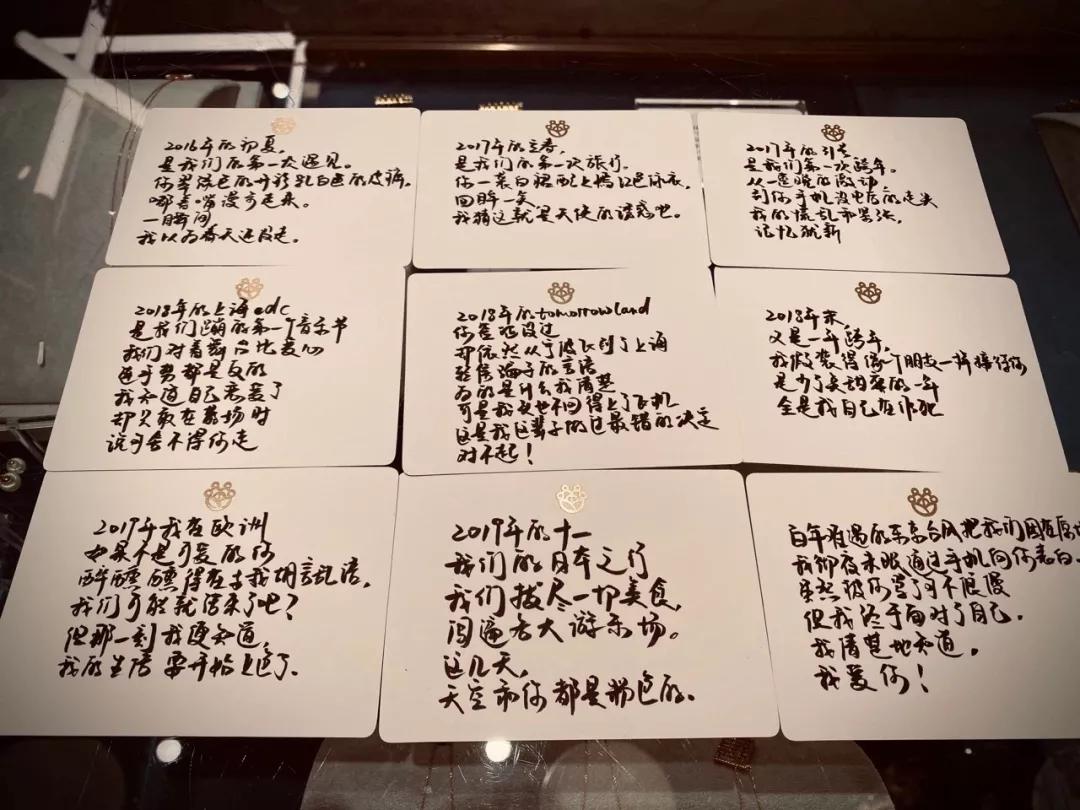 2016年的初夏，
是我们的第一次遇见。
你穿绿色的 乳白色的皮裤，
走来。
一瞬间，
我以为春天还没走。
2017年的立春，
是我们的第一次旅行。
你一袭白裙配上嫣红色泳衣，
回眸一笑，
我猜这就是天使的诱惑吧。
2017年的
是我们第一次跨年，
从 的激动
到你手机没电后的走失
我的慌乱和紧张，
记忆犹新
2018年的上海edc
是我们蹦的第一个音乐节
我们对着舞台比爱心
连手势都是反的
我知道自己恋爱了
却只敢在散场时
说句舍不得你走
2018年的tomorrowland
你签证没过
却依然从宁波飞到了上海
的言语
为的是什么我清楚
可是我头也不回得上了飞机
这是我这辈子做过最错的决定
对不起！
2018年末
又是一年跨年，
我假装得像个朋友一样 你
是少了点甜蜜的一年
全是我自己在作死
2019年我在欧洲
如果不是可爱的你
醉醺醺得在 我胡言乱语，
我们可能就结束了吧？
但那一刻我便知道，
我的生活要开始上色了.
2019年的十一
我们的日本之行
我们拔尽一切美食，
闯遍各大游乐场。
这几天，
天空和你都是粉色的.
百年难遇的东京台风把我们困在原地
我彻夜未眠通过手机向你表白.
虽然被你骂了
但我终于面对了自己.
我清楚地知道，
我爱你！